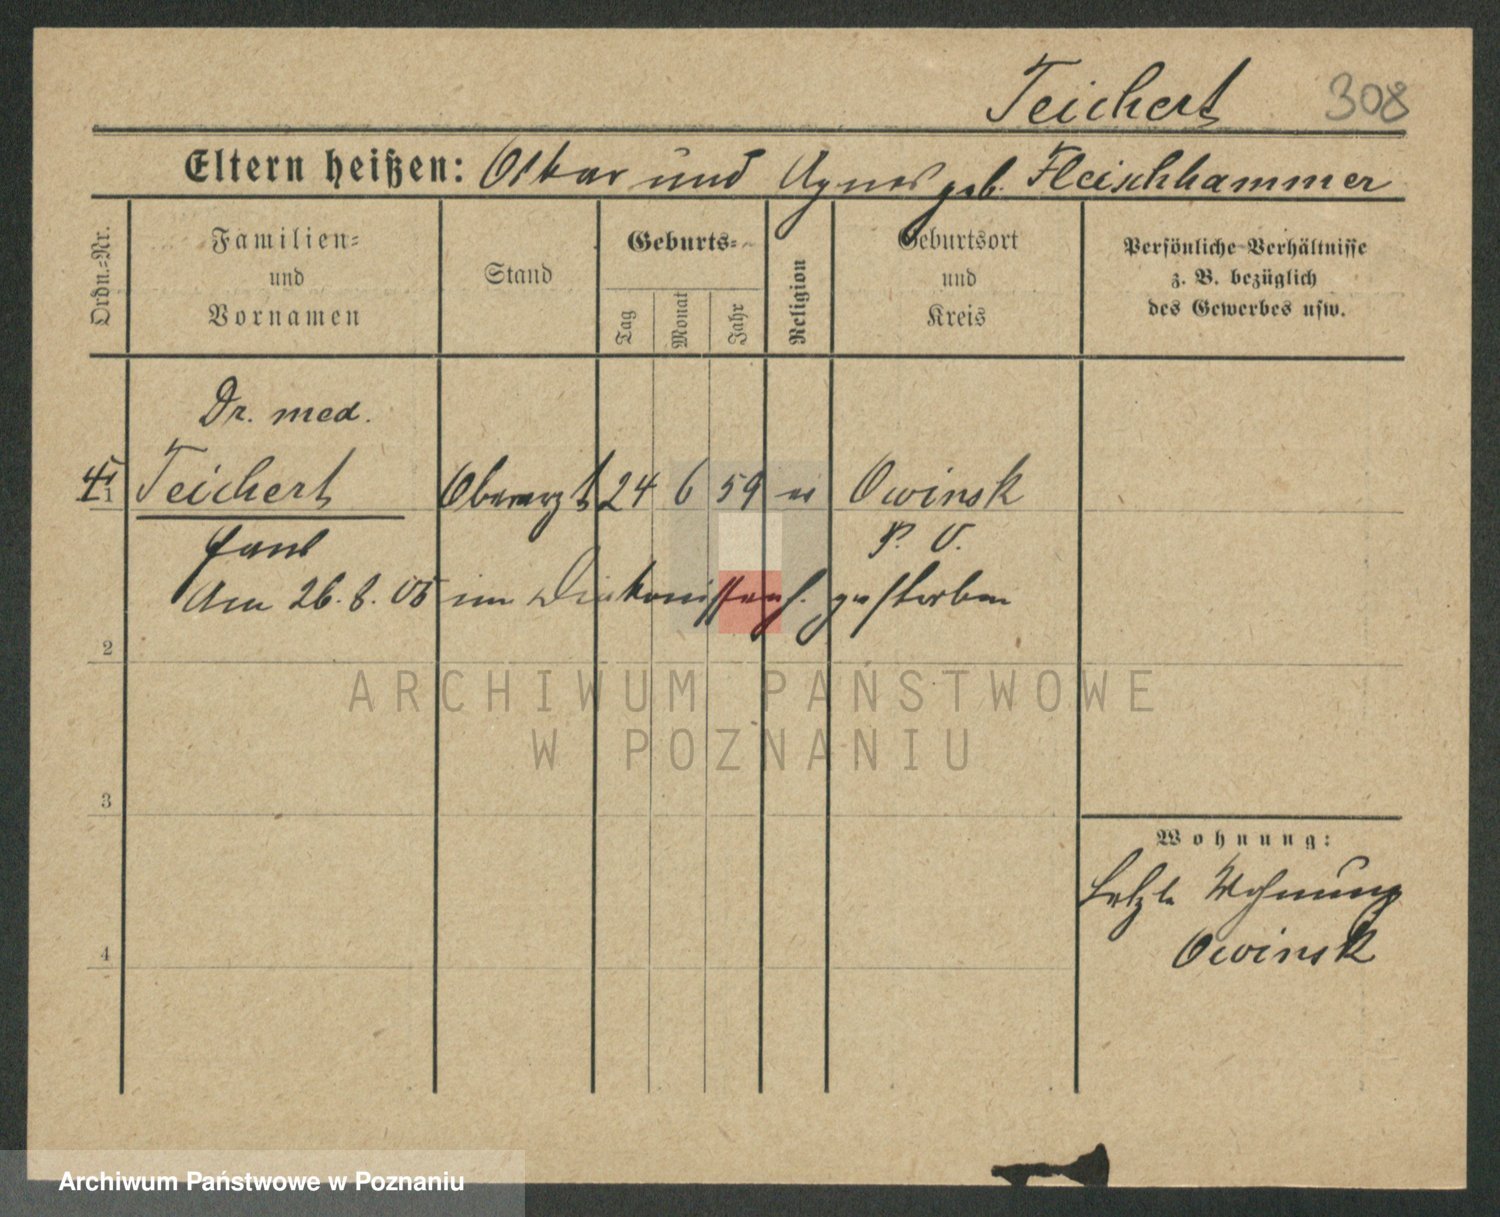 Teichert 308
Eltern heißen: Oskar und Agnes geb. Fleischhammer
Ordn.-Nr.
Familien-
und
Vornamen
Stand
Geburts-
Tag
Monat
Jahr
Religion
Geburtsort
und
Kreis
Persönliche Verhältnisse
z. B. bezüglich
des Gewerbes usw.
Dr. med.
1 Teichert Oberarzt 24 6 59 ev Owinsk
Paul P. O.
Am 26. 8. 05 im Diakonissenh. gestorben
2
ARCHIWUM PAŃSTWOWE
W POZNANIU
3
Wohnung:
Letzte Wohnung
Owinsk
4
Archiwum Państwowe w Poznaniu